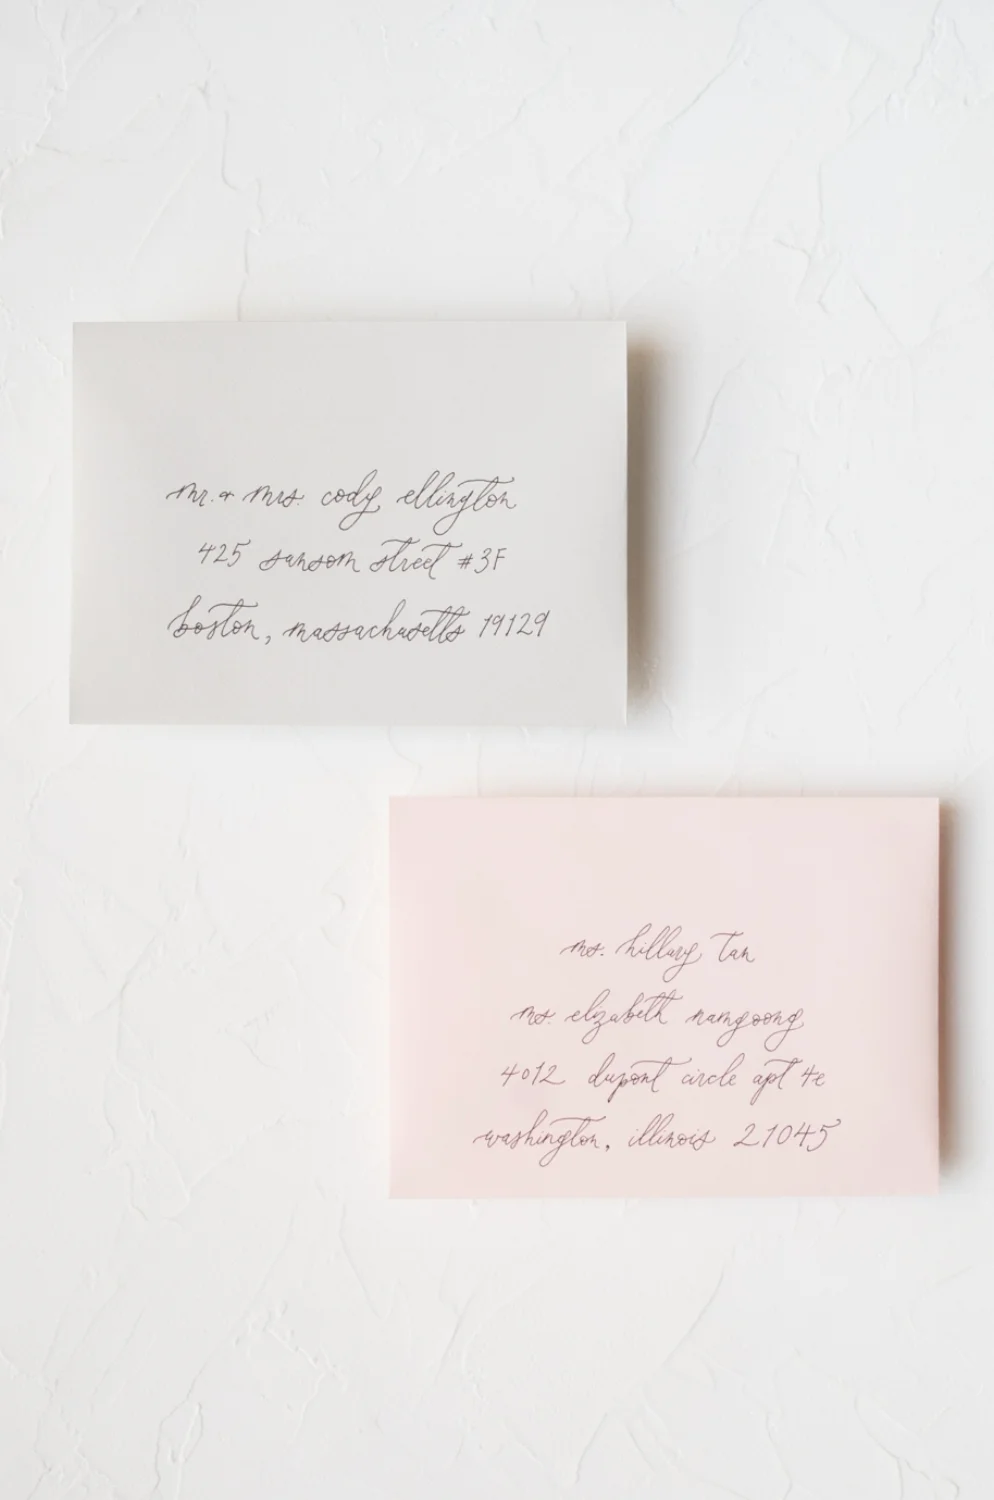 mr. & mrs. cody ellington
425 sansom street #3F
boston, massachusetts 19129
ms. hillary tan
ms. elizabeth namgoong
4012 dupont circle apt 4e
washington, illinois 21045